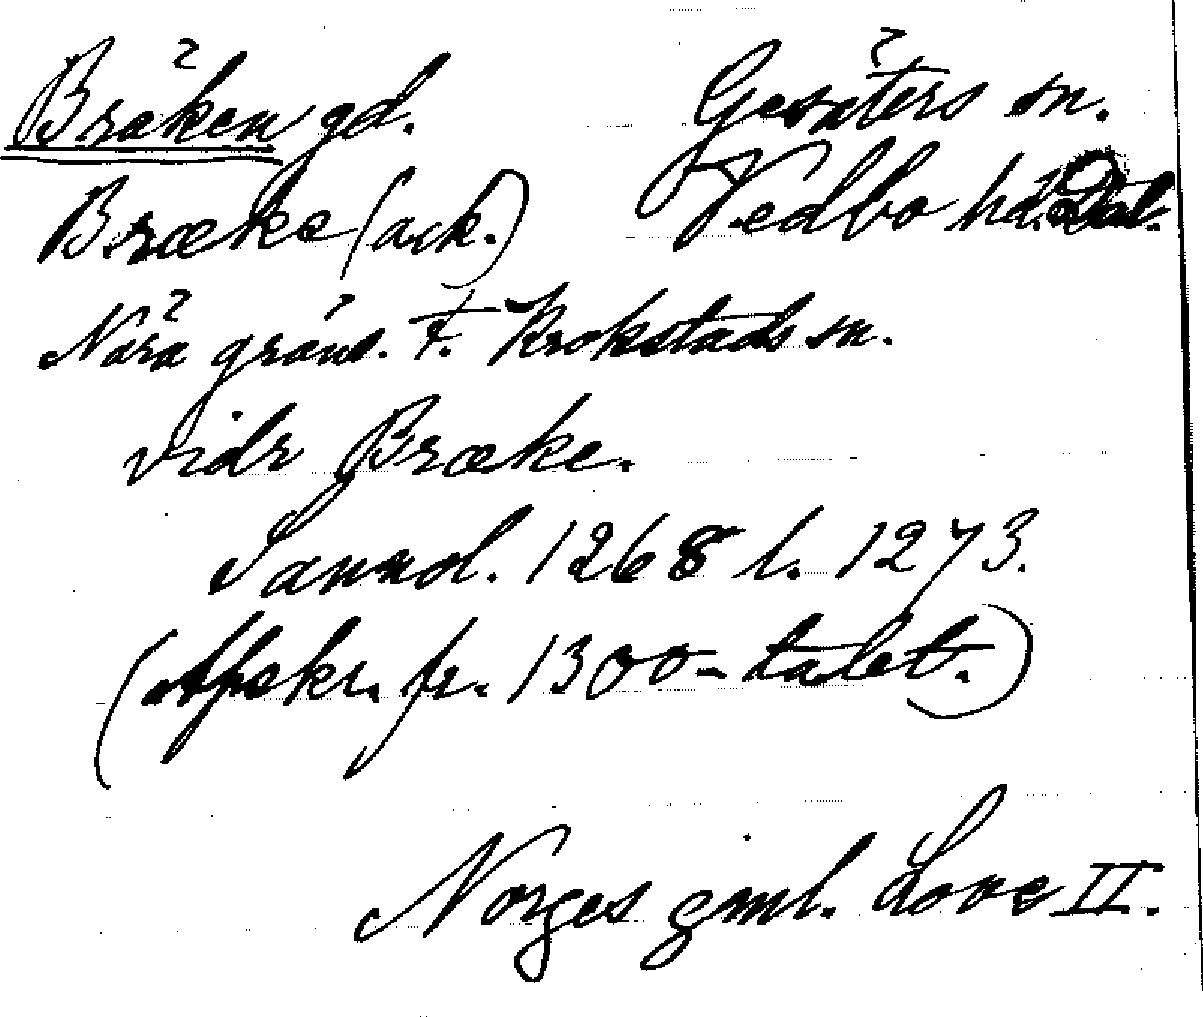 Bräken gd. Gesäters sn.
Bræke (ack.) Vedbo hd. Dal.
Nära gräns. t. Krokstads sn.
vidr Bræke.
Sannol. 1268 l. 1273.
(Afskr. fr. 1300-talet.)
Norges gml. Love II.